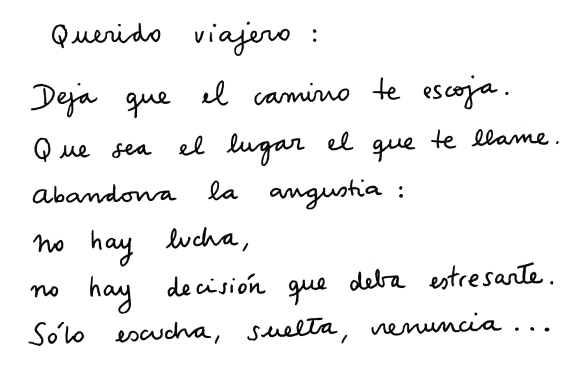 Querido viajero :
Deja que el camino te escoja.
Que sea el lugar el que te llame.
abandona la angustia :
no hay lucha,
no hay decisión que deba estresarte.
Sólo escucha, suelta, renuncia ...